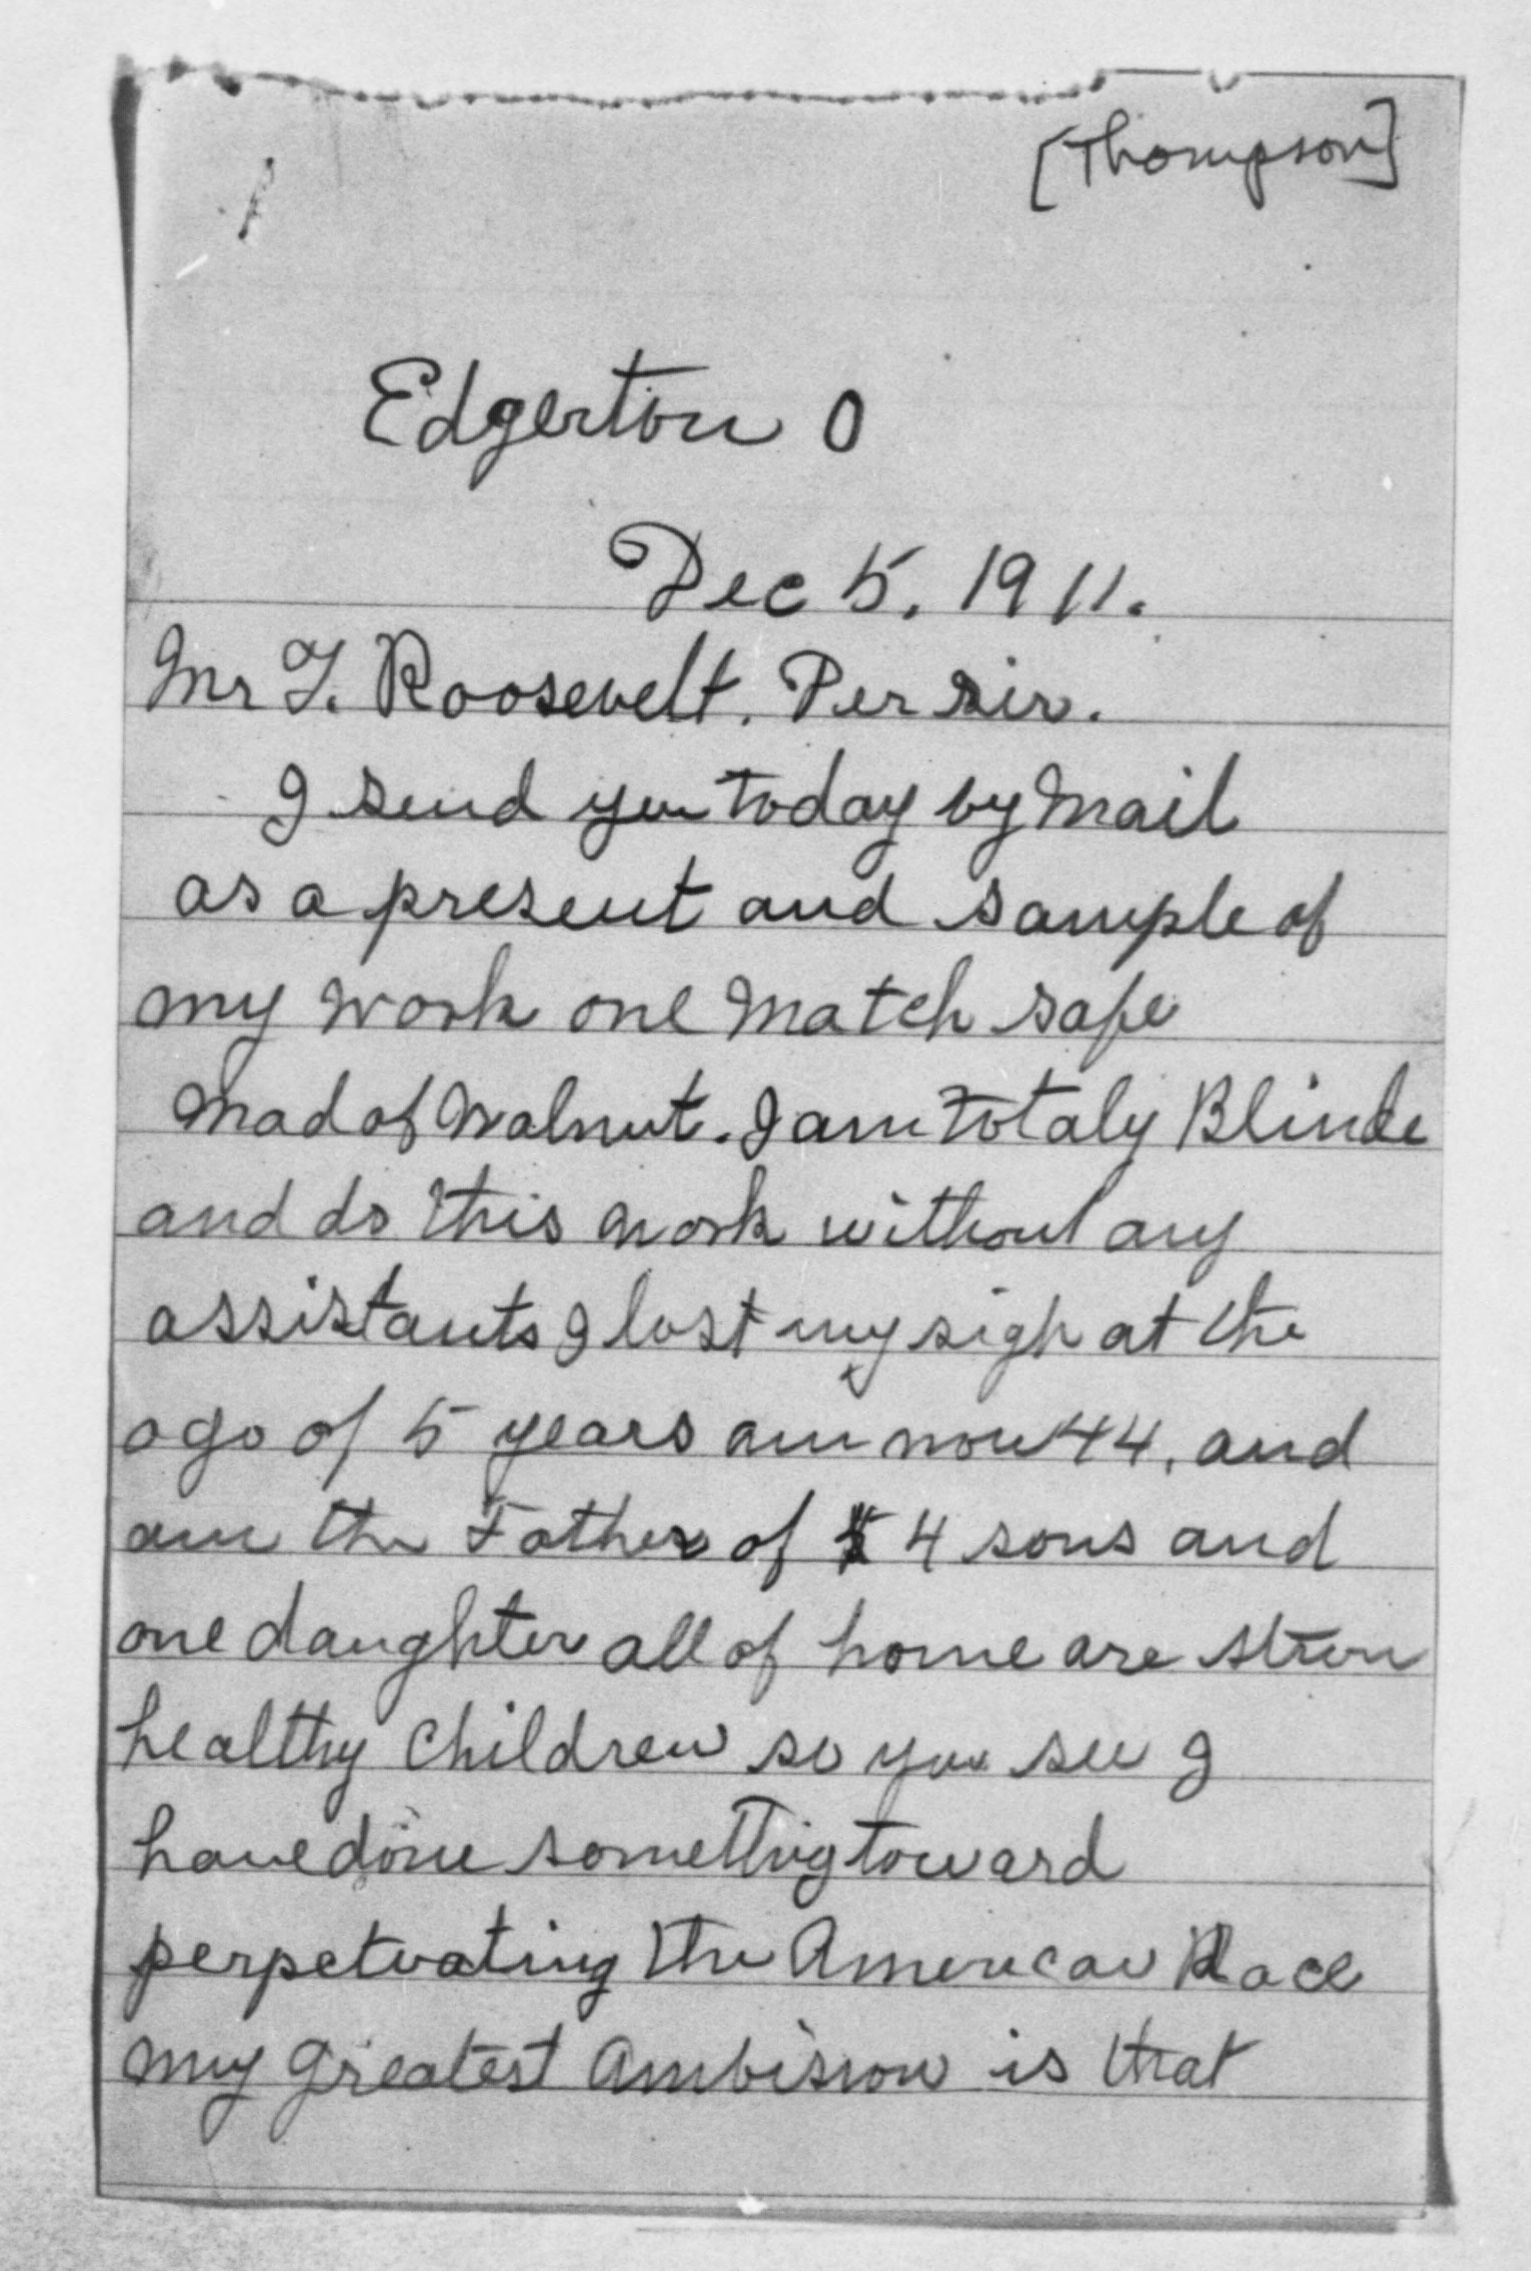 [Thompson]
Edgerton O
Dec 5. 1911.
Mr T. Roosevelt. Der sir.
I send you today by mail
as a present and sample of
my work one match safe
mad of walnut. I am totaly Blinde
and do this work without any
assistants I lost my sigh at the
age of 5 years am now 44, and
am the Father of 4 sons and
one daughter all of home are stron
healthy children so you see I
have done somethig toward
perpetuating the American Race
my greatest ambision is that